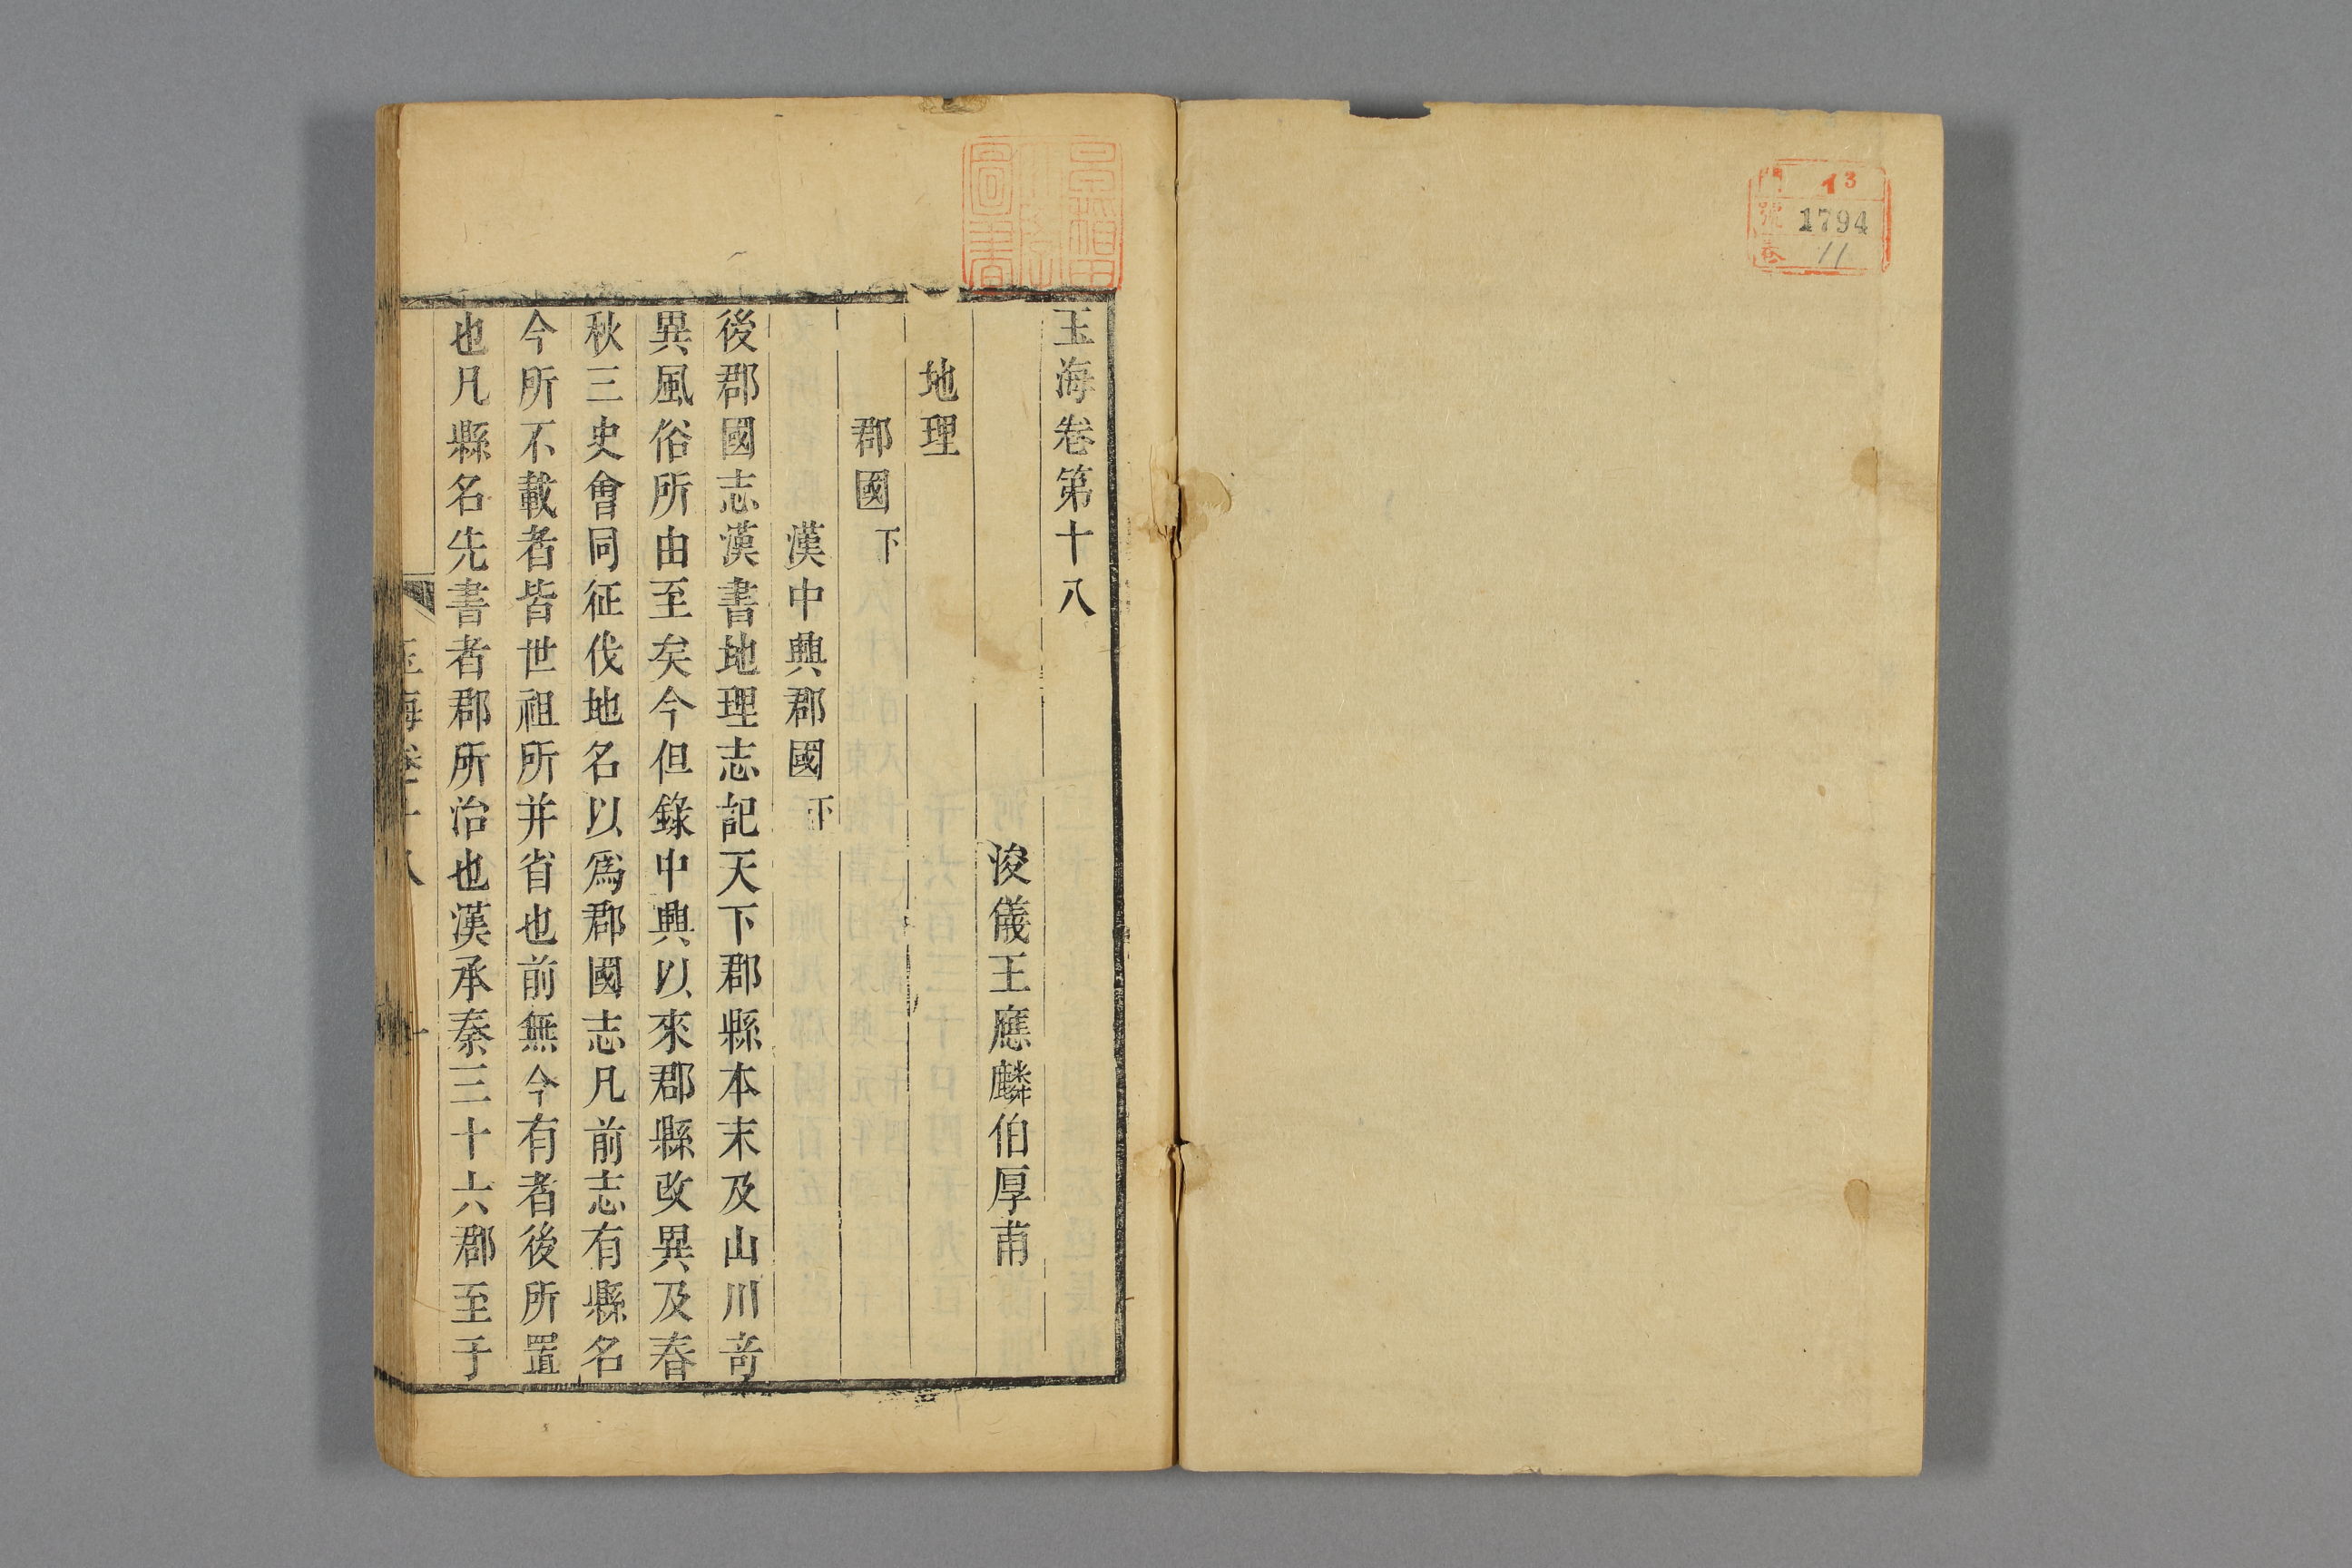 門 13
號 1794
卷 11
玉海卷第十八
浚儀王應麟伯厚甫
地理
郡國下
漢中興郡國下
後郡國志漢書地理志記天下郡縣本末及山川竒
異風俗所由至矣今但錄中興以來郡縣改異及春
秋三史會同征伐地名以爲郡國志凡前志有縣名
今所不載者皆世祖所并省也前無今有者後所置
也凡縣名先書者郡所治也漢承秦三十六郡至于
玉海卷十八 一